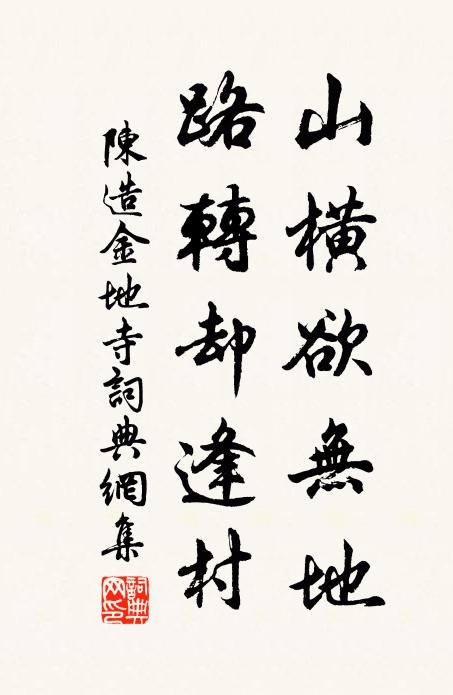 山橫欲無地
路轉却逢村
陳造金地寺詞典網集
詞典網印